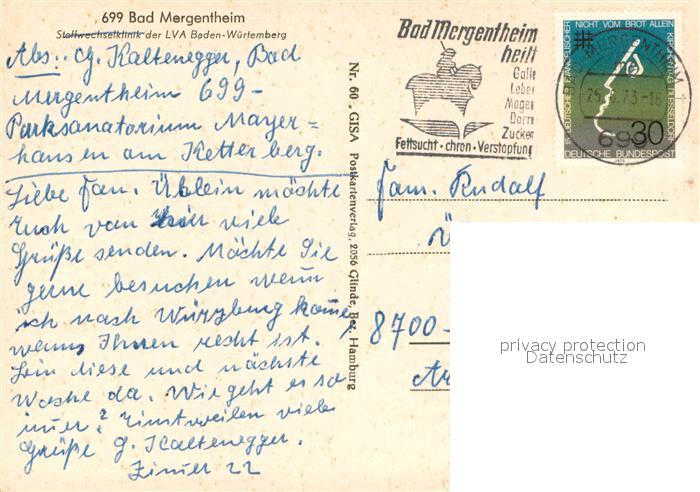 699 Bad Mergentheim
Stoffwechselklinik der LVA Baden-Würtemberg
Abs.: G. Kaltenegger, Bad
Mergentheim 699-
Parksanatorium Mayer=
hausen am Ketterberg.
Liebe Fam. Üblein möchte
Euch von hier viele
Grüße senden. Möchte Sie
gerne besuchen wenn
ich nach Würzburg komme,
wenn Ihnen recht ist.
Bin diese und nächste
Woche da. Wie geht es so
immer? Einstweilen viele
Grüße G. Kaltenegger.
Zimer 22
Nr. 60 GISA Postkartenverlag, 2056 Glinde, Bez. Hamburg
Bad Mergentheim
heilt
Galle
Leber
Magen
Darm
Zucker
Fettsucht · chron · Verstopfung
NICHT VOM BROT ALLEIN
15. DEUTSCHER EVANGELISCHER
KIRCHENTAG DÜSSELDORF
30
DEUTSCHE BUNDESPOST
BAD MERGENTHEIM 1
73-16
699
Fam. Rudolf
Ü
8700-
privacy protection
Datenschutz